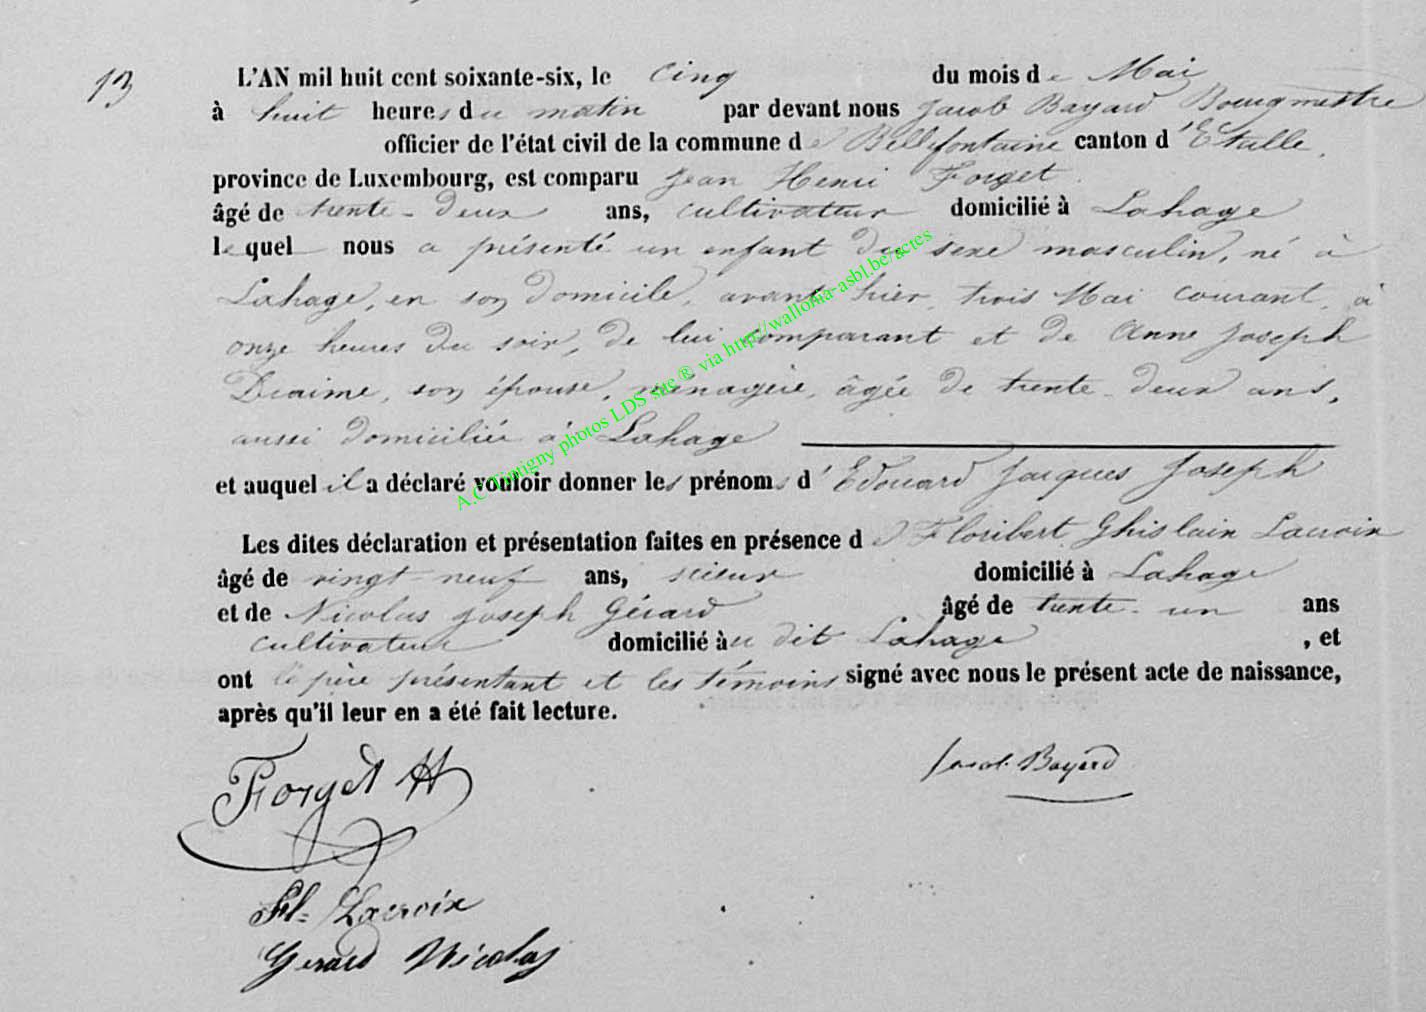 13
L'AN mil huit cent soixante-six, le Cinq du mois de Mai
à huit heures du matin par devant nous Jacob Bayard Bourgmestre
officier de l'état civil de la commune de Bellefontaine canton d'Etalle,
province de Luxembourg, est comparu Jean Henri Forget
âgé de trente-deux ans, cultivateur domicilié à Lahage
lequel nous a présenté un enfant du sexe masculin, né à
Lahage, en son domicile, avant hier, trois Mai courant, à
onze heures du soir, de lui comparant et de Anne Joseph
Diaime, son épouse, ménagère, âgée de trente-deux ans,
aussi domiciliée à Lahage
et auquel il a déclaré vouloir donner les prénoms d'Edouard Jacques Joseph
Les dites déclaration et présentation faites en présence de Floribert Ghislain Lacroix
âgé de vingt-neuf ans, scieur domicilié à Lahage
et de Nicolas Joseph Gérard âgé de trente-un ans
cultivateur domicilié au dit Lahage, et
ont le père présentant et les témoins signé avec nous le présent acte de naissance,
après qu'il leur en a été fait lecture.
Forget H
Jacob Bayard
Fl= Lacroix
Gerard Nicolas
A.C Tintigny photos LDS site ® via http://wallonia-asbl.be/actes